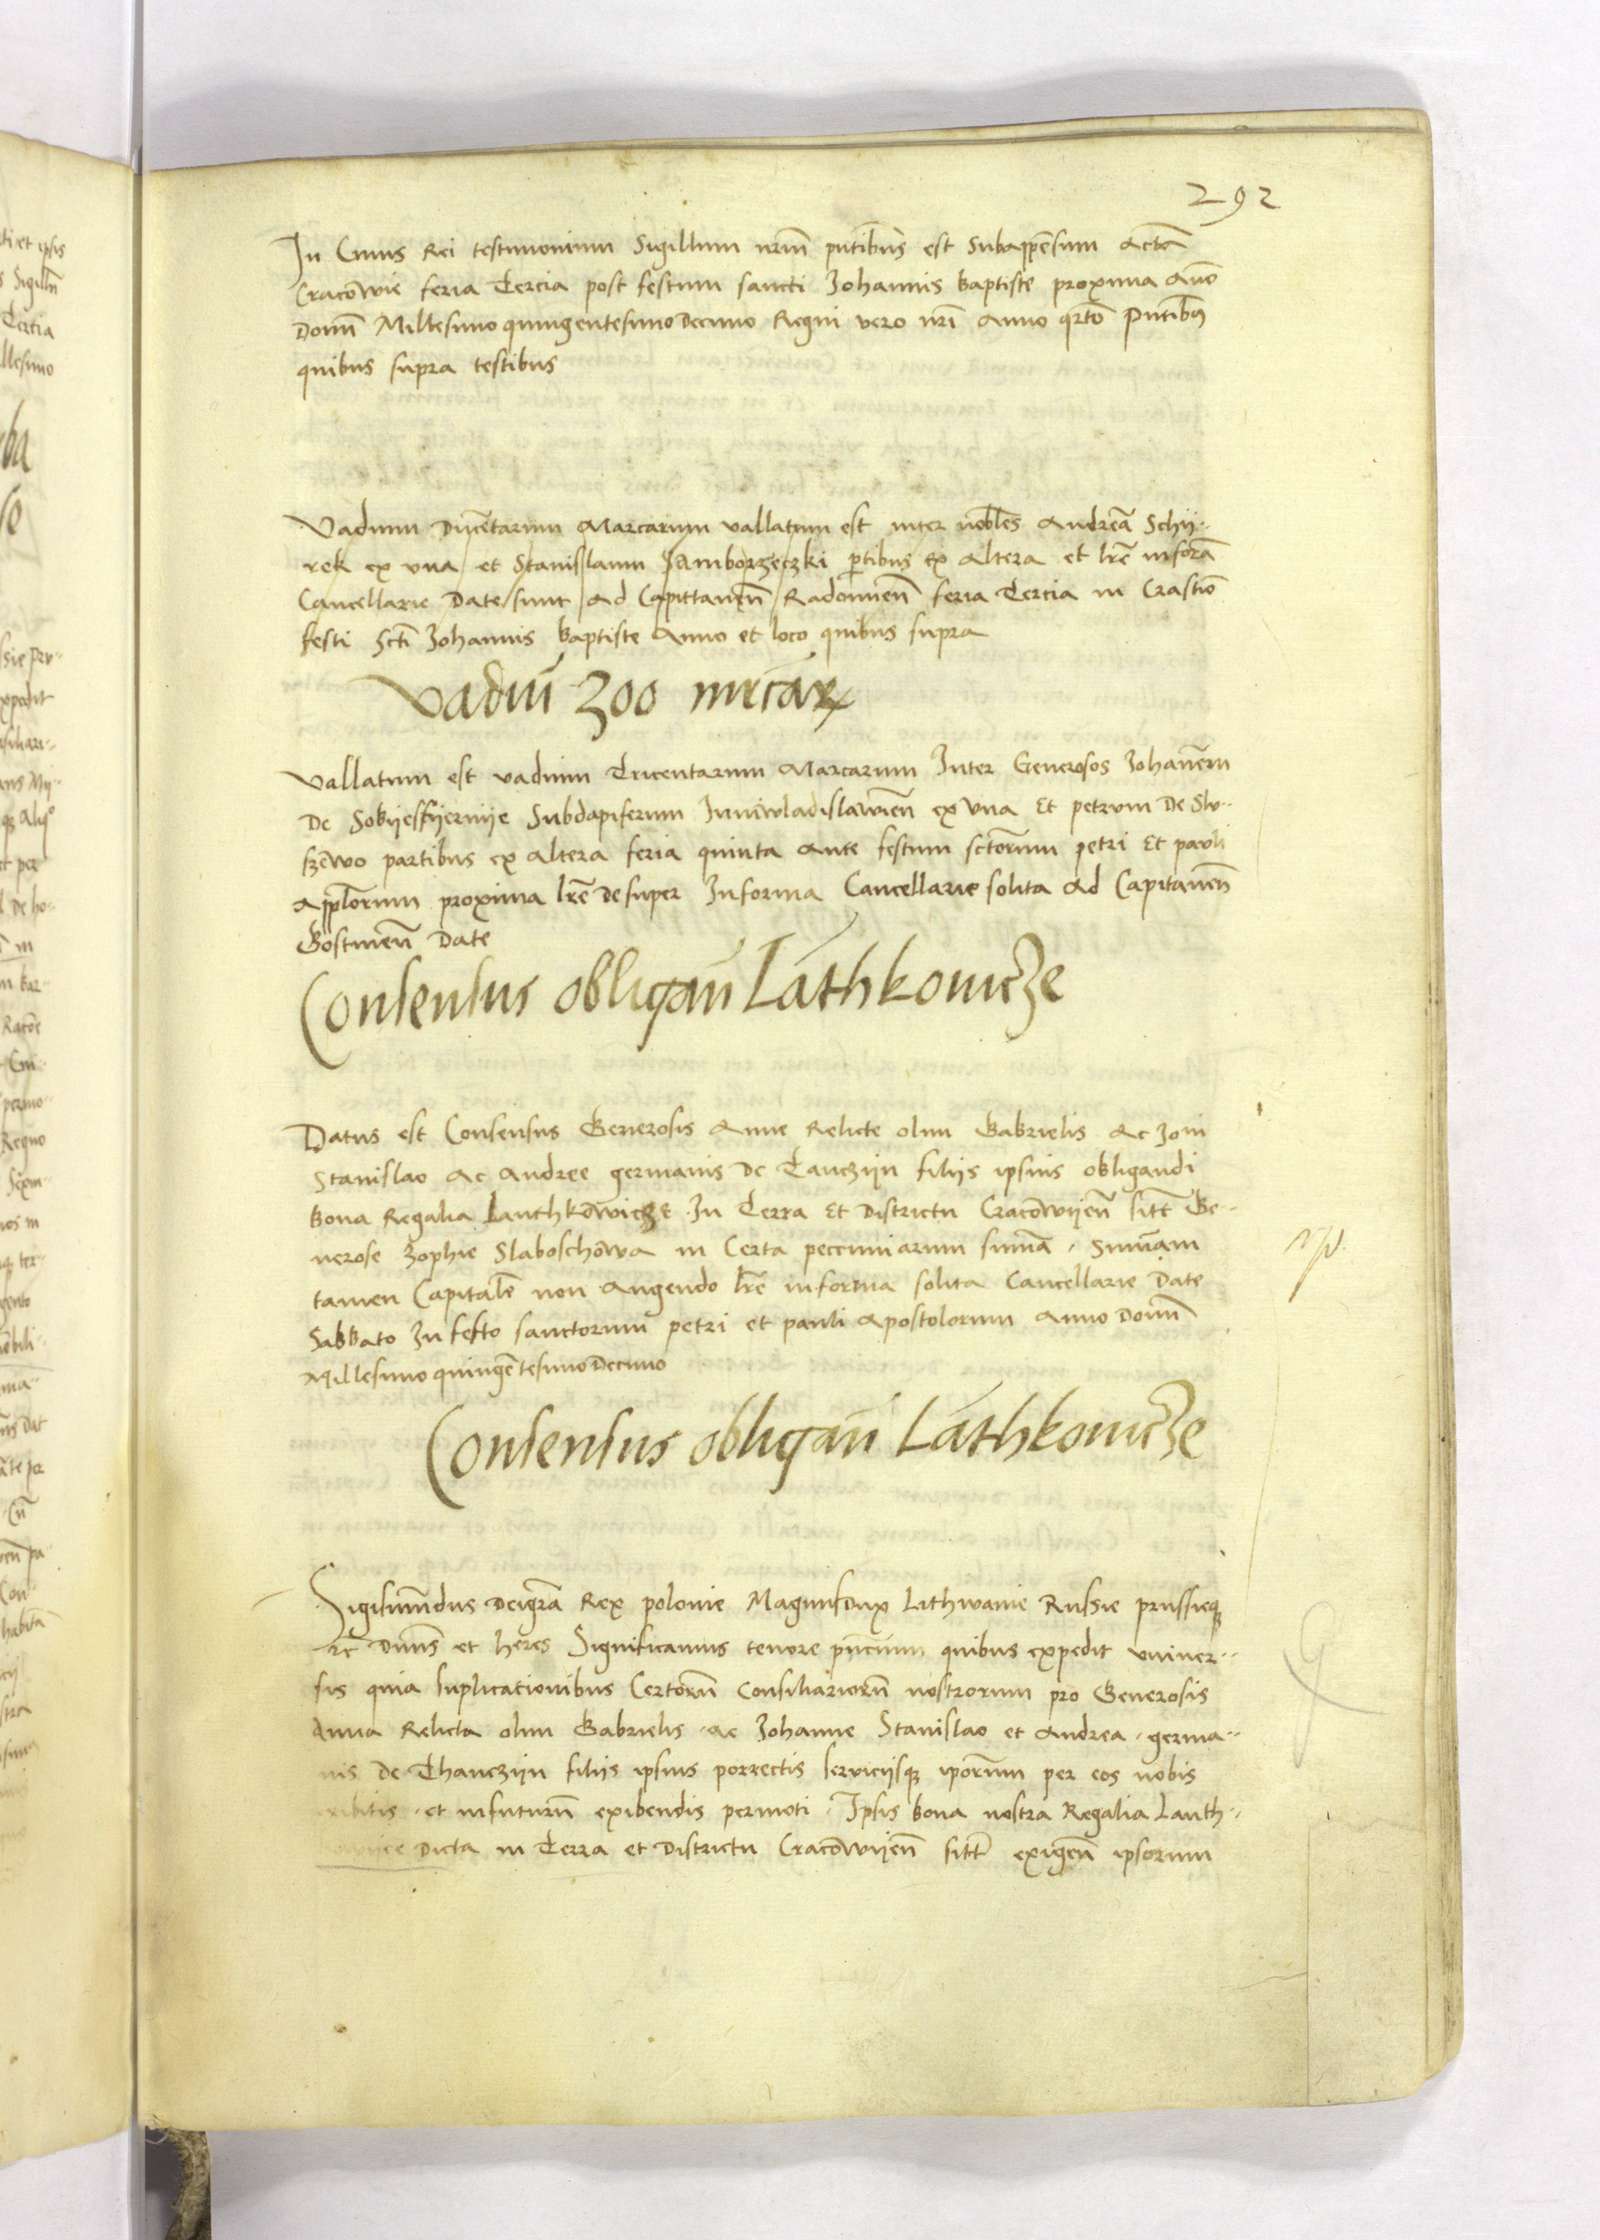 292
In Cuius Rei testimonium Sigillum nrm̄ pntibus est Subappēsum Actā
Cracōwie feria Tercia post festum sancti Johannis baptiste proxima Anō
Domī Millesimo quingentesimo Decimo Regni vero nrī Anno qrtō Pntibus
quibus supra testibus
Vadium Ducētarum Marcarum vallatum est inter nobiles Andreā Schij..
rek ex vna et Stanislaum Jamborzeczki ptibus ex Altera et lrē in forā
Cancellarie Date sunt Ad Capittaneū Radomieñ feria Tercia in Crastiō
festi Scti Johannis baptiste Anno et loco quibus supra
Vadiū 300 mrcar
Vallatum est vadium Tricentarum Marcarum Inter Generosos Johannēm
De Sokijesfijernije Subdapiferum Juniwladislawieñ ex Vna Et petrum De Slu..
szēwo partibus ex Altera feria quinta Ante festum sctōrum petri Et pauli
Applōrum proxima lrē Desuper In forma Cancellarie solita Ad Capitaneū
Gostineñ Date
Consensus obligañ Lathkowicze
Datus est Consensus Generosis Anne Relicte olim Gabrielis Ac Joīi
Stanislao Ac Andree germanis De Tanczijn filijs ipsius obligandi
bona Regalia Lanthkōwicze In Terra Et Districtu Cracōwijeñ sitt Ge..
nerose Zophie Slaboschōwa in Certa peccuniarum sumā. Sumam
tamen Capitalē non Augendo lrē in forma solita Cancellarie Date
Sabbato In festo sanctorum petri et pauli Apostolorum Anno Domī
Millesimo quingētesimo Decimo
Consensus obligañ Lathkowicze
Sigismūdus Dei grā Rex polonie Magnus Dux Lithwanie Russie prussieq
Ac Dn̄s et heres Significamus tenore pn̄cium quibus expedit vniuer..
sis quia Suplicationibus Certorū Consiliariorū nostrorum pro Generosis
Anna Relicta olim Gabrielis. Ac Johanne Stanislao et Andrea. germa..
nis De Thanczijn filijs ipsius porrectis servicijsq iporūm per eos nobis
exibitis. et in futurū exibendis permoti. Ipsis bona nostra Regalia Lanth..
Dicta in Terra et Districtu Cracōwijeñ sitt exigeñ ipsorum